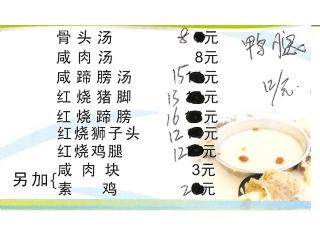 骨头汤 8元
咸肉汤 8元
咸蹄膀汤 15元
红烧猪脚 13元
红烧蹄膀 16元
红烧狮子头 12元
红烧鸡腿 12元
另加{咸肉块 3元
素鸡 2元
鸭腿
12/元